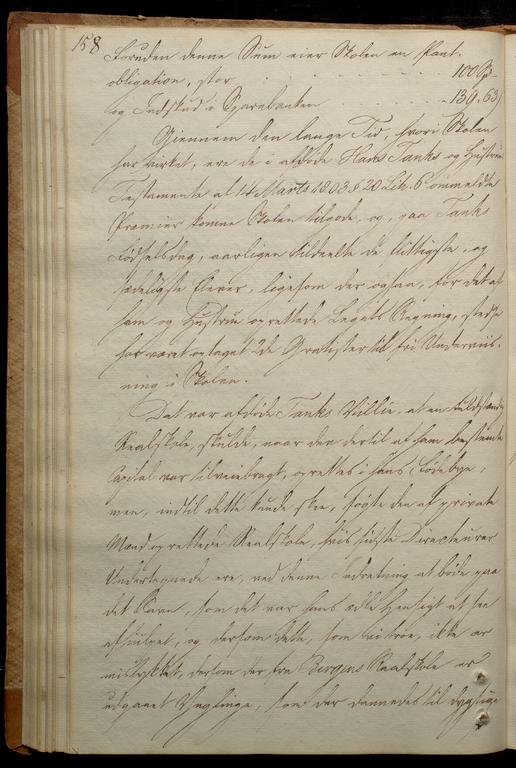 158
Foruden denne Sum eier Skolen en Pant-
obligation, stor . . . . . 100 Sp
og Indskud i Sparebanken . . . . - 139. 63
Gjennem den lange Tid, hvori Skolen
har virket, ere de i afdøde Hans Tanks og Hustrus
Testamente af 14 Marts 1803 § 20 Lit. B ommeldte
Præmier komne Skolen tilgode, og, paa Tanks
Fødselsdag, aarligen tildeelte de flittigste og
sædeligste Elever, ligesom der ogsaa, for det af
ham og Hustrue oprettede Legats Regning, stedse
har været optaget 2de Gratister til fri Underviis-
ning i Skolen.
Det var afdøde Tanks Villie, at en fuldstændig
Realskole, skulde, naar den dertil af ham bestemte
Capital var tilveiebragt, oprettes i hans Fødebye,
men, indtil dette kunde skee, søgte den af private
Mænd oprettede Realskole, hvis sidste Directeurer
Undertegnede ere, ved denne Indretning at bøde paa
det Savn, som det var hans ædle Hensigt at faa
afhiulpet, og dersom dette, som vi troe, ikke er
mislykket, dersom der fra Bergens Realskole er
udgaaet Ynglinge, som der dannedes til dygtige